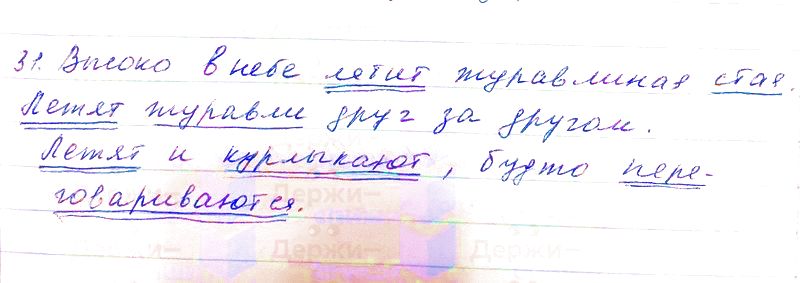 31. Высоко в небе летит журавлиная стая.
Летят журавли друг за другом.
Летят и курлыкают, будто пере-
говариваются.
Держи-
Держи-
Держи-